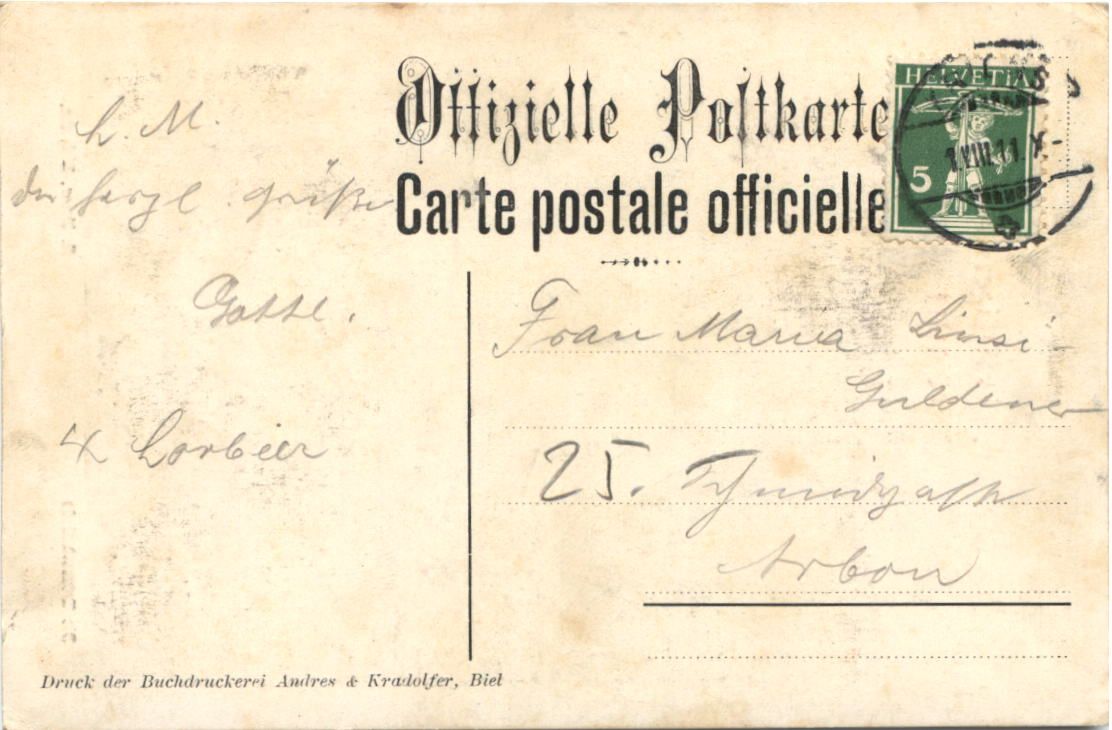 Offizielle Postkarte
Carte postale officielle
HELVETIA
5
L. M.
die herzl. Grüße
Gottl.
Frau Maria Linsi-
Guldener
25.
Arbon
Druck der Buchdruckerei Andres & Kradolfer, Biel